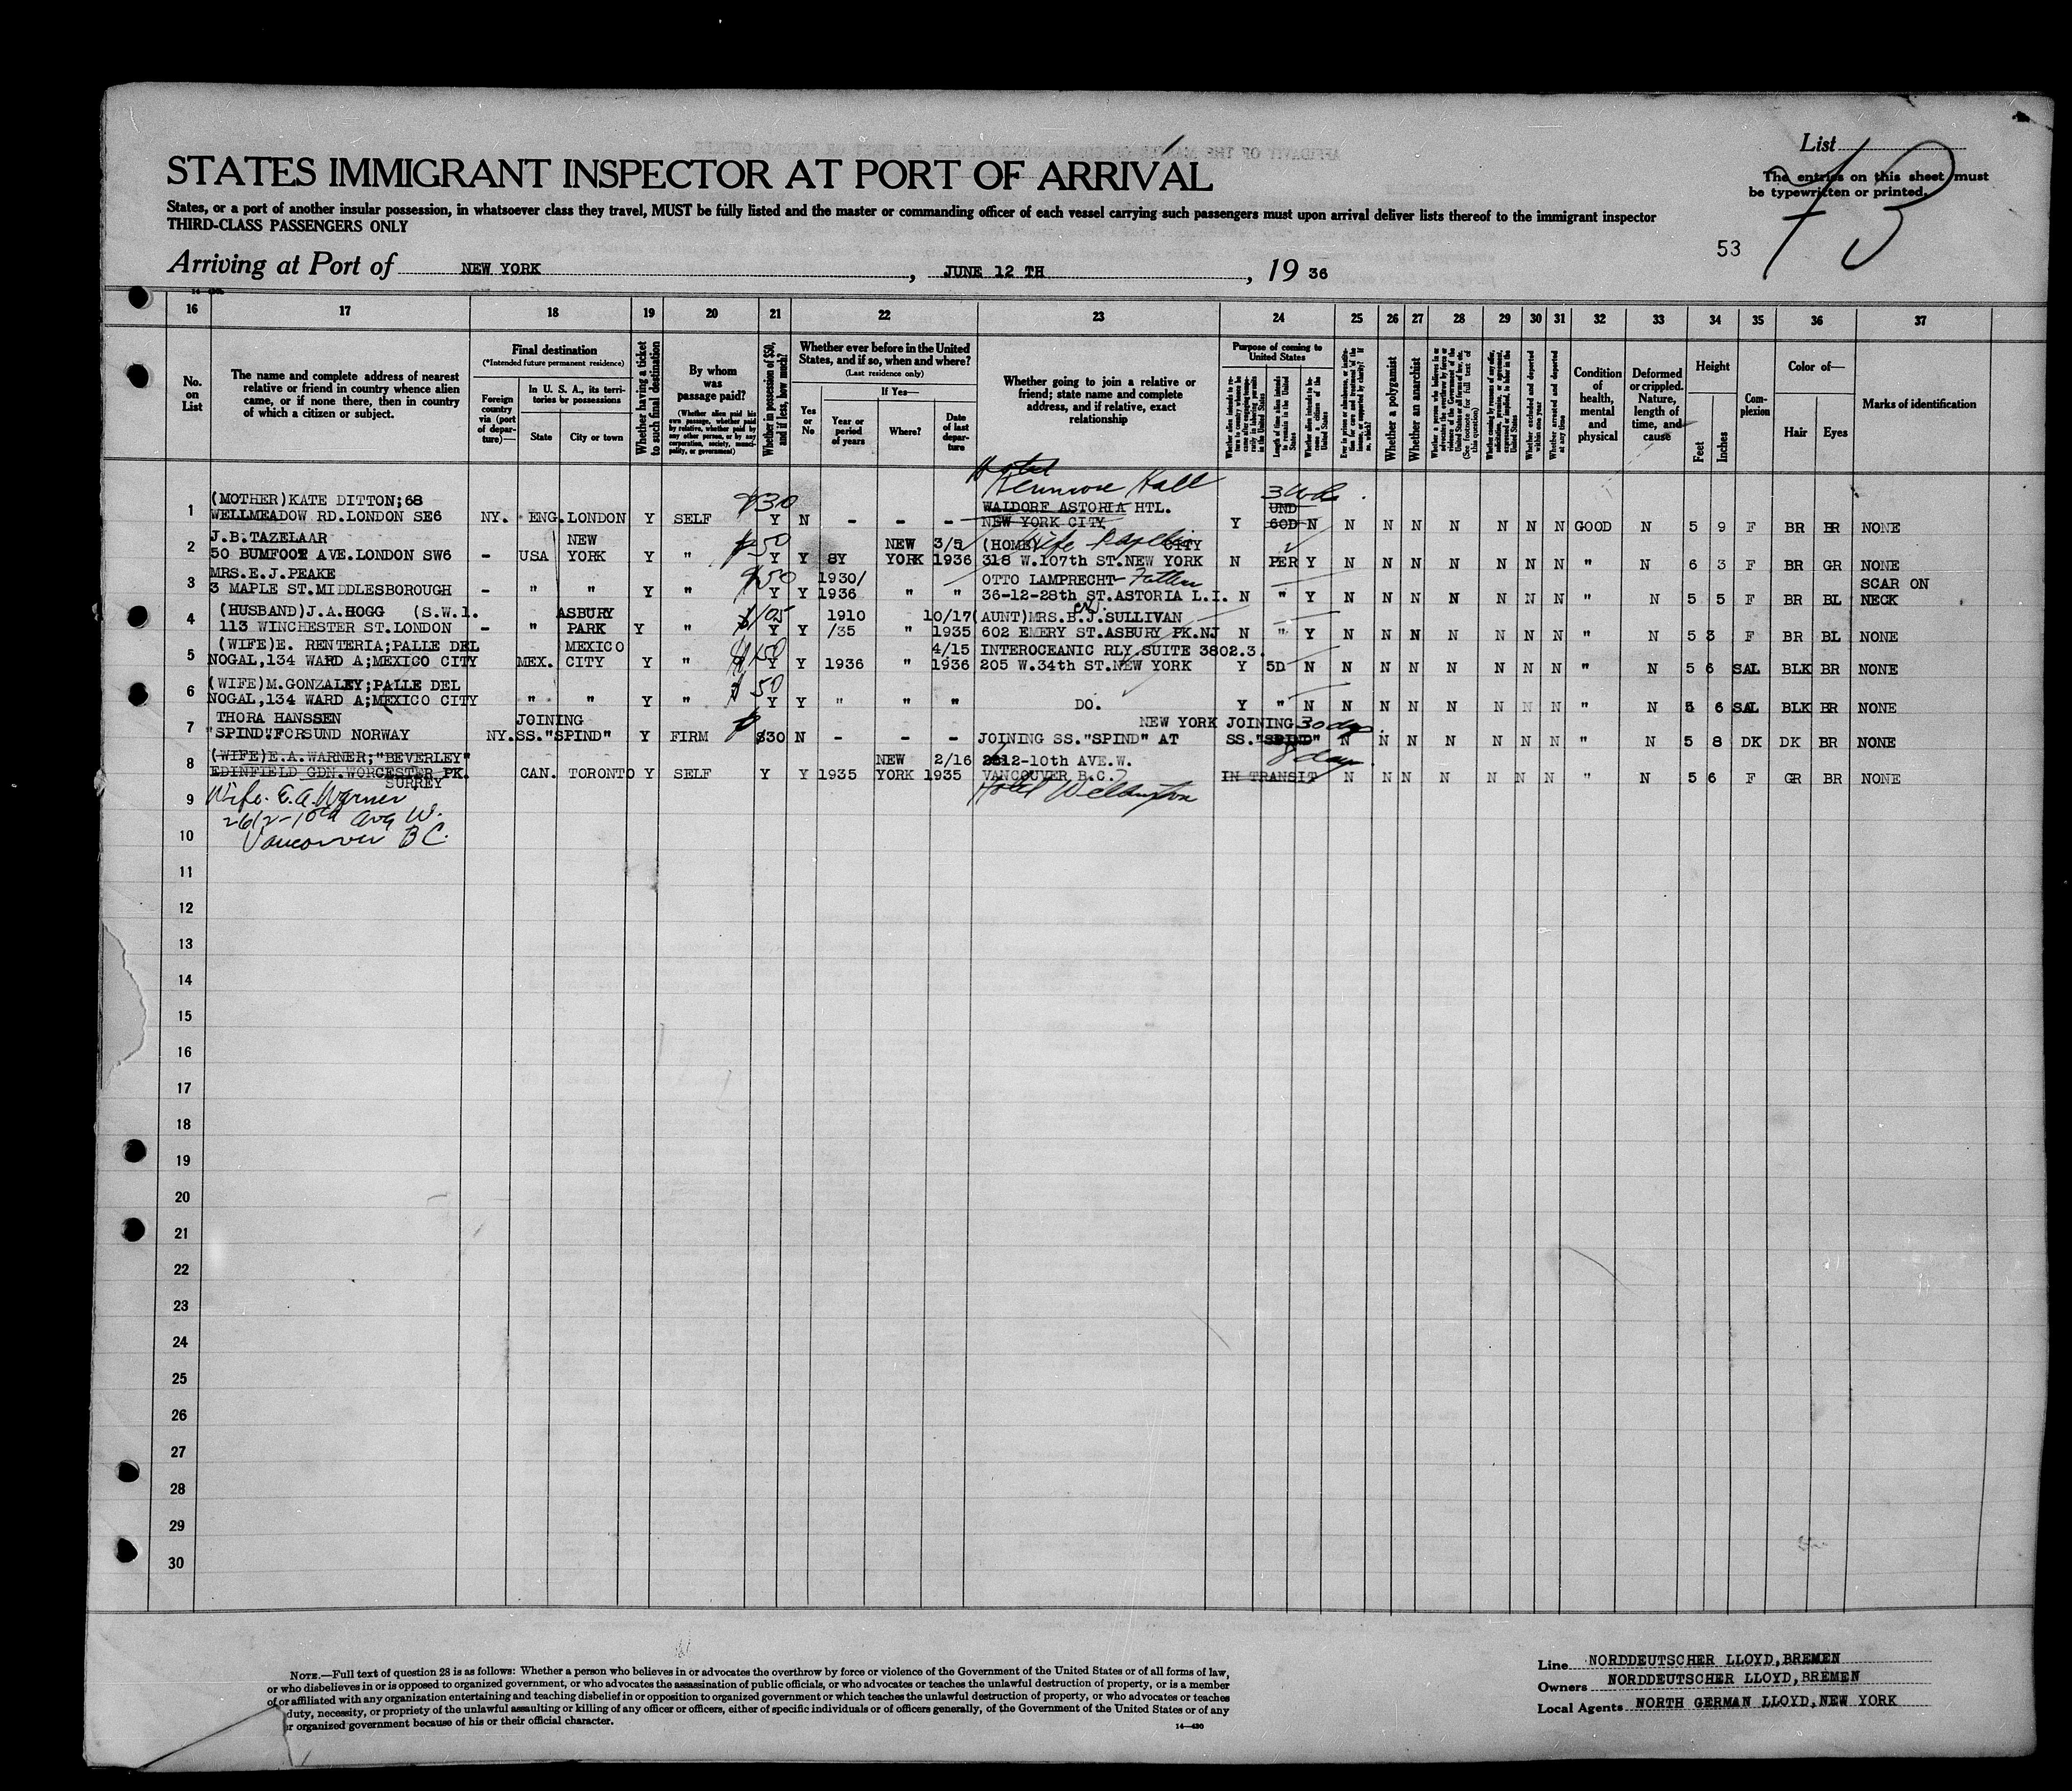 List
73
The entries on this sheet must
be typewritten or printed.
STATES IMMIGRANT INSPECTOR AT PORT OF ARRIVAL
States, or a port of another insular possession, in whatsoever class they travel, MUST be fully listed and the master or commanding officer of each vessel carrying such passengers must upon arrival deliver lists thereof to the immigrant inspector
THIRD-CLASS PASSENGERS ONLY
53
Arriving at Port of NEW YORK, JUNE 12 TH, 19 36
16 17 18 19 20 21 22 23 24 25 26 27 28 29 30 31 32 33 34 35 36 37
No.
on
List
The name and complete address of nearest
relative or friend in country whence alien
came, or if none there, then in country
of which a citizen or subject.
Final destination
(*Intended future permanent residence)
Foreign
country
via (port
of depar-
ture)—
In U. S. A., its terri-
tories or possessions
State
City or town
Whether having a ticket
to such final destination
By whom
was
passage paid?
(Whether alien paid his
own passage, whether paid
by relative, whether paid by
any other person, or by any
corporation, society, munici-
pality, or government)
Whether in possession of $50,
and if less, how much?
Whether ever before in the United
States, and if so, when and where?
(Last residence only)
Yes
or
No
If Yes—
Year or
period
of years
Where?
Date
of last
depar-
ture
Whether going to join a relative or
friend; state name and complete
address, and if relative, exact
relationship
Purpose of coming to
United States
Length of time alien intends
to remain in the United
States
Whether alien intends to be-
come a citizen of the
United States
Whether a polygamist
Whether an anarchist
Whether arrested and deported
at any time
Condition
of
health,
mental
and
physical
Deformed
or crippled.
Nature,
length of
time, and
cause
Height
Feet
Inches
Com-
plexion
Color of—
Hair
Eyes
Marks of identification
Hotel
Kenmore Hall
1 (MOTHER)KATE DITTON;68 $30 WALDORF ASTORIA HTL. UND
WELLMEADOW RD.LONDON SE6 NY. ENG.LONDON Y SELF Y N - - - NEW YORK CITY Y 60D N N N N N N N N GOOD N 5 9 F BR BR NONE
2 J.B.TAZELAAR NEW $50 NEW 3/5 (HOME) Wife CITY
50 BUMFOOT AVE.LONDON SW6 - USA YORK Y " Y Y 8Y YORK 1936 318 W.107th ST.NEW YORK N PER Y N N N N N N N " N 6 3 F BR GR NONE
3 MRS.E.J.PEAKE $50 1930/ OTTO LAMPRECHT- Father SCAR ON
3 MAPLE ST.MIDDLESBOROUGH - " " Y " Y Y 1936 " " 36-12-28th ST.ASTORIA L.I. N " Y N N N N N N N " N 5 5 F BR BL NECK
4 (HUSBAND)J.A.HOGG (S.W.1. ASBURY $105 1910 10/17 (AUNT)MRS.B.J.SULLIVAN
113 WINCHESTER ST.LONDON - " PARK Y " Y Y /35 " 1935 602 EMERY ST.ASBURY PK.NJ N " Y N N N N N N N " N 5 3 F BR BL NONE
5 (WIFE)E. RENTERIA;PALLE DEL MEXICO $150 4/15 INTEROCEANIC RLY.SUITE 3802.3.
NOGAL,134 WARD A;MEXICO CITY MEX. CITY Y " Y Y 1936 " 1936 205 W.34th ST.NEW YORK Y 5D N N N N N N N N " N 5 6 SAL BLK BR NONE
6 (WIFE)M.GONZALEY;PALLE DEL $50
NOGAL,134 WARD A;MEXICO CITY " " Y " Y Y " " " DO. Y " N N N N N N N N " N 5 6 SAL BLK BR NONE
7 THORA HANSSEN JOINING NEW YORK JOINING 30 days
"SPIND".FORSUND NORWAY NY.SS."SPIND" Y FIRM $30 N - - - JOINING SS."SPIND" AT SS."SPIND" N N N N N N N " N 5 8 DK DK BR NONE
8 (WIFE)E.A.WARNER;"BEVERLEY" NEW 2/16 2612-10th AVE.W. 8 days
EDINFIELD GDN.WORCESTER PK. CAN. TORONTO Y SELF Y Y 1935 YORK 1935 VANCOUVER B.C. IN TRANSIT N N N N N N N " N 5 6 F GR BR NONE
SURREY
Hotel Wellington
9 Wife. E.A. Warner
2612-10th Ave W.
10 Vancouver B C.
11
12
13
14
15
16
17
18
19
20
21
22
23
24
25
26
27
28
29
30
NOTE.—Full text of question 28 is as follows: Whether a person who believes in or advocates the overthrow by force or violence of the Government of the United States or of all forms of law,
or who disbelieves in or is opposed to organized government, or who advocates the assassination of public officials, or who advocates or teaches the unlawful destruction of property, or is a member
of or affiliated with any organization entertaining and teaching disbelief in or opposition to organized government or which teaches the unlawful destruction of property, or who advocates or teaches
duty, necessity, or propriety of the unlawful assaulting or killing of any officer or officers, either of specific individuals or of officers generally, of the Government of the United States or of any
r organized government because of his or their official character.
14—430
Line NORDDEUTSCHER LLOYD,BREMEN
Owners NORDDEUTSCHER LLOYD,BREMEN
Local Agents NORTH GERMAN LLOYD,NEW YORK